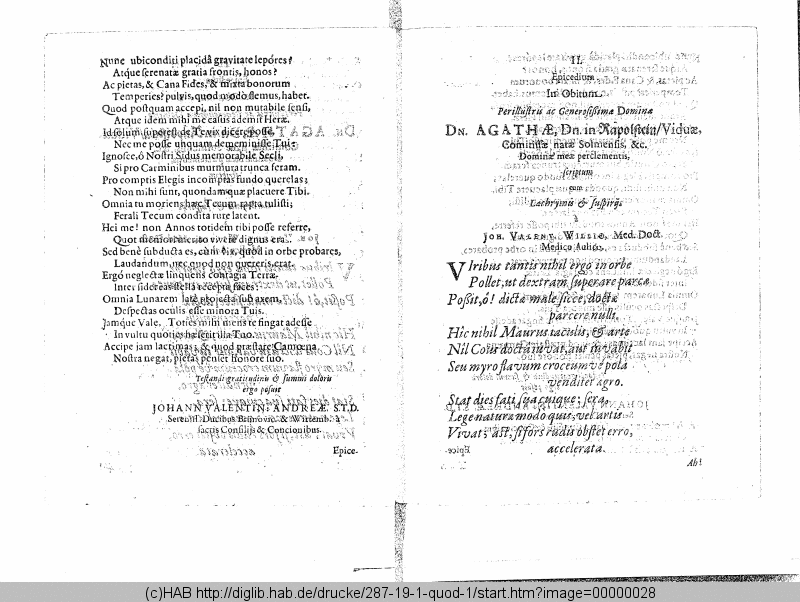 Nunc ubi conditi placidâ gravitate lepôres?
Atque serenatæ gratia frontis, honos?
Ac pietas, & Cana Fides, & mixta bonorum
Temperies? pulvis, quod modò flemus, habet.
Quod postquam accepi, nil non mutabile sensi,
Atque idem mihi me casus ademit Heræ.
Id solum superest de Te vix dicere posse,
Nec me posse unquam dememinisse Tui:
Ignosce, ô Nostri Sidus memorabile Secli,
Si pro Carminibus murmura trunca feram.
Pro comptis Elegis incomptas fundo querelas;
Non mihi sunt, quondam quæ placuere Tibi.
Omnia tu moriens hæc Tecum rapta tulisti;
Ferali Tecum condita rure latent.
Hei me! non Annos totidem tibi posse referre,
Quot memor merito vivere dignus era
Sed benè subducta es, cùm vix, quod in orbe probares,
Laudandum, nec quod non quereris, erat.
Ergò neglectæ linquens contagia Terræ,
Inter sidereas stella recepta faces:
Omnia Lunarem latè projecta sub axem,
Despectas oculis esse minora Tuis.
Jamque Vale. Toties mihi mens te fingat adesse
In vultu quoties hæserit illa Tuo.
Accipe jam lacrimas; & quod præstare Camœna
Nostra negat, pietas penset honore suo.
Testandi gratitudinis & summi doloris
ergo posuit
JOHANN VALENTIN: ANDREÆ. S.T.D.
Sereniss. Ducibus Brunovic. & Wirtemb. à
sacris Consiliis & Concionibus.
Epice-
II.
Epicedium
In Obitum
Perillustris ac Generosissimæ Dominæ
DN. AGATHÆ, Dn. in Rapolstein/Viduæ,
Comitissæ natæ Solmensis, &c.
Dominæ meæ perclementis,
scriptum
cum
Lachrymis & suspiriis
à
JOH. VALENT. WILLIO, Med. Doct.
Medico Aulico.
Viribus tantis nihil ergo in orbe
Pollet, ut dextram superare parcæ
Possit, ô! dictæ male sicce, doctæ
parcere nulli.
Hic nihil Maurus iaculis, & arte
Nil Cous doctâ iuvat, aut iuvabit
Seu myro flavum croceumve pola
venditer agro.
Stat dies fati sua cuique; sera,
Lege naturæ modo quis, vel artis
Vivat; ast, si sors radiis obstet erro,
accelerata.
Ah!
(c)HAB http://diglib.hab.de/drucke/287-19-1-quod-1/start.htm?image=00000028